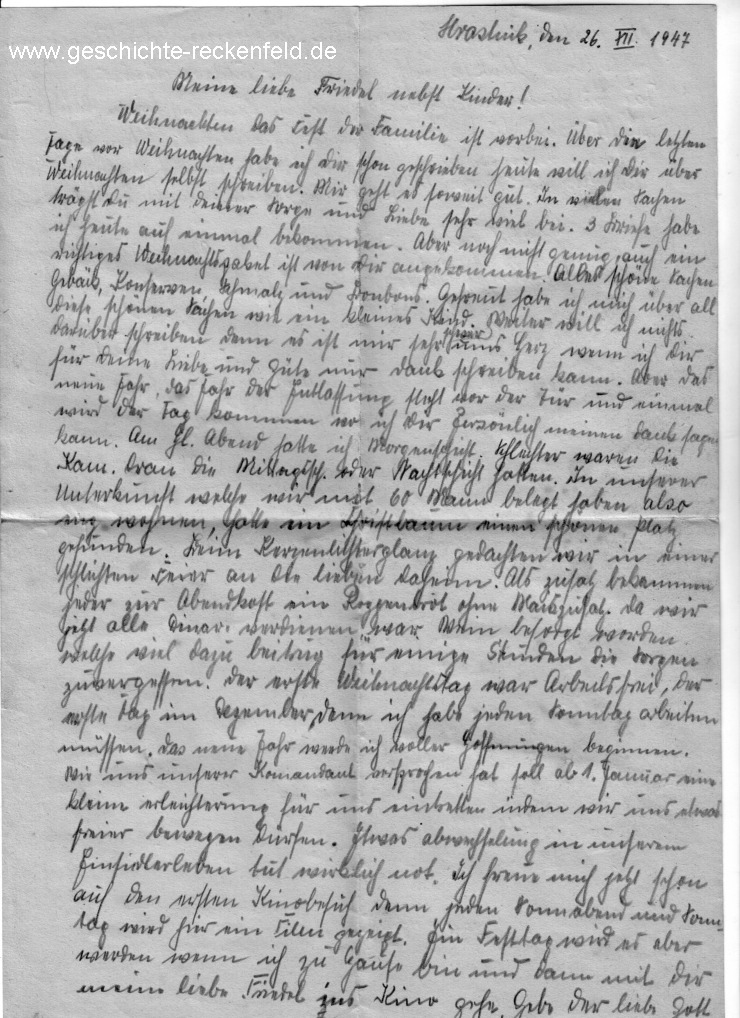 www.geschichte-reckenfeld.de
Hrastnik, den 26. XII. 1947
Meine liebe Friedel nebst Kinder!
Weihnachten das Fest der Familie ist vorbei. Über die letzten
Tage vor Weihnachten habe ich Dir schon geschrieben heute will ich Dir über
Weihnachten selbst schreiben. Mir geht es soweit gut. In vielen Sachen
trägst Du mit Deiner Sorge und Liebe sehr viel bei. 3 Briefe habe
ich heute auf einmal bekommen. Aber noch nicht genug, auch ein
richtiges Weihnachtspaket ist von Dir angekommen. Alles schöne Sachen
Gebäck, Konserven, Schmalz und Bonbons. Gefreut habe ich mich über all
diese schönen Sachen wie ein kleines Kind. Weiter will ich nichts
darüber schreiben denn es ist mir sehr schwer ums Herz wenn ich Dir
für Deine Liebe und Güte nur dank schreiben kann. Aber das
neue Jahr, das Jahr der Entlassung steht vor der Tür und einmal
wird der Tag kommen wo ich Dir Persönlich meinen dank sagen
kann. Am Hl. Abend hatte ich Morgenschicht. Schlechter waren die
Kam. dran die Mittagsch. oder Nachtschicht hatten. In unserer
Unterkunft welche wir mit 60 Mann belegt haben also
eng wohnen, hatte ein Christbaum einen schönen Platz
gefunden. Beim Kerzenlichterglanz gedachten wir in einer
schlichten Feier an die lieben daheim. Als zusatz bekammen
jeder zur Abendkost ein Roggenbrot ohne Maiszusatz. Da wir
jetzt alle Dinar verdienen, war Wein besorgt worden
welche viel dazu beitrug für einige Stunden die Sorgen
zuvergessen. Der erste Weihnachtstag war Arbeitsfrei, der
erste Tag im Dezember, denn ich habe jeden Sonntag arbeiten
müssen. Das neue Jahr werde ich voller Hoffnungen beginnen.
Wie uns unserer Komandant versprochen hat soll ab 1. Januar eine
kleine erleichterung für uns eintretten indem wir uns etwas
freier bewegen dürfen. Etwas abwechselung in unserem
Einsidlerleben tut wirklich not. Ich freue mich jetzt schon
auf den ersten Kinobesuch denn jeden Sonnabend und Sonn-
tag wird hier ein Film gezeigt. Ein Festtag wird es aber
werden wenn ich zu Hause bin und dann mit Dir
meine liebe Friedel ins Kino gehe. Gebe der liebe Gott